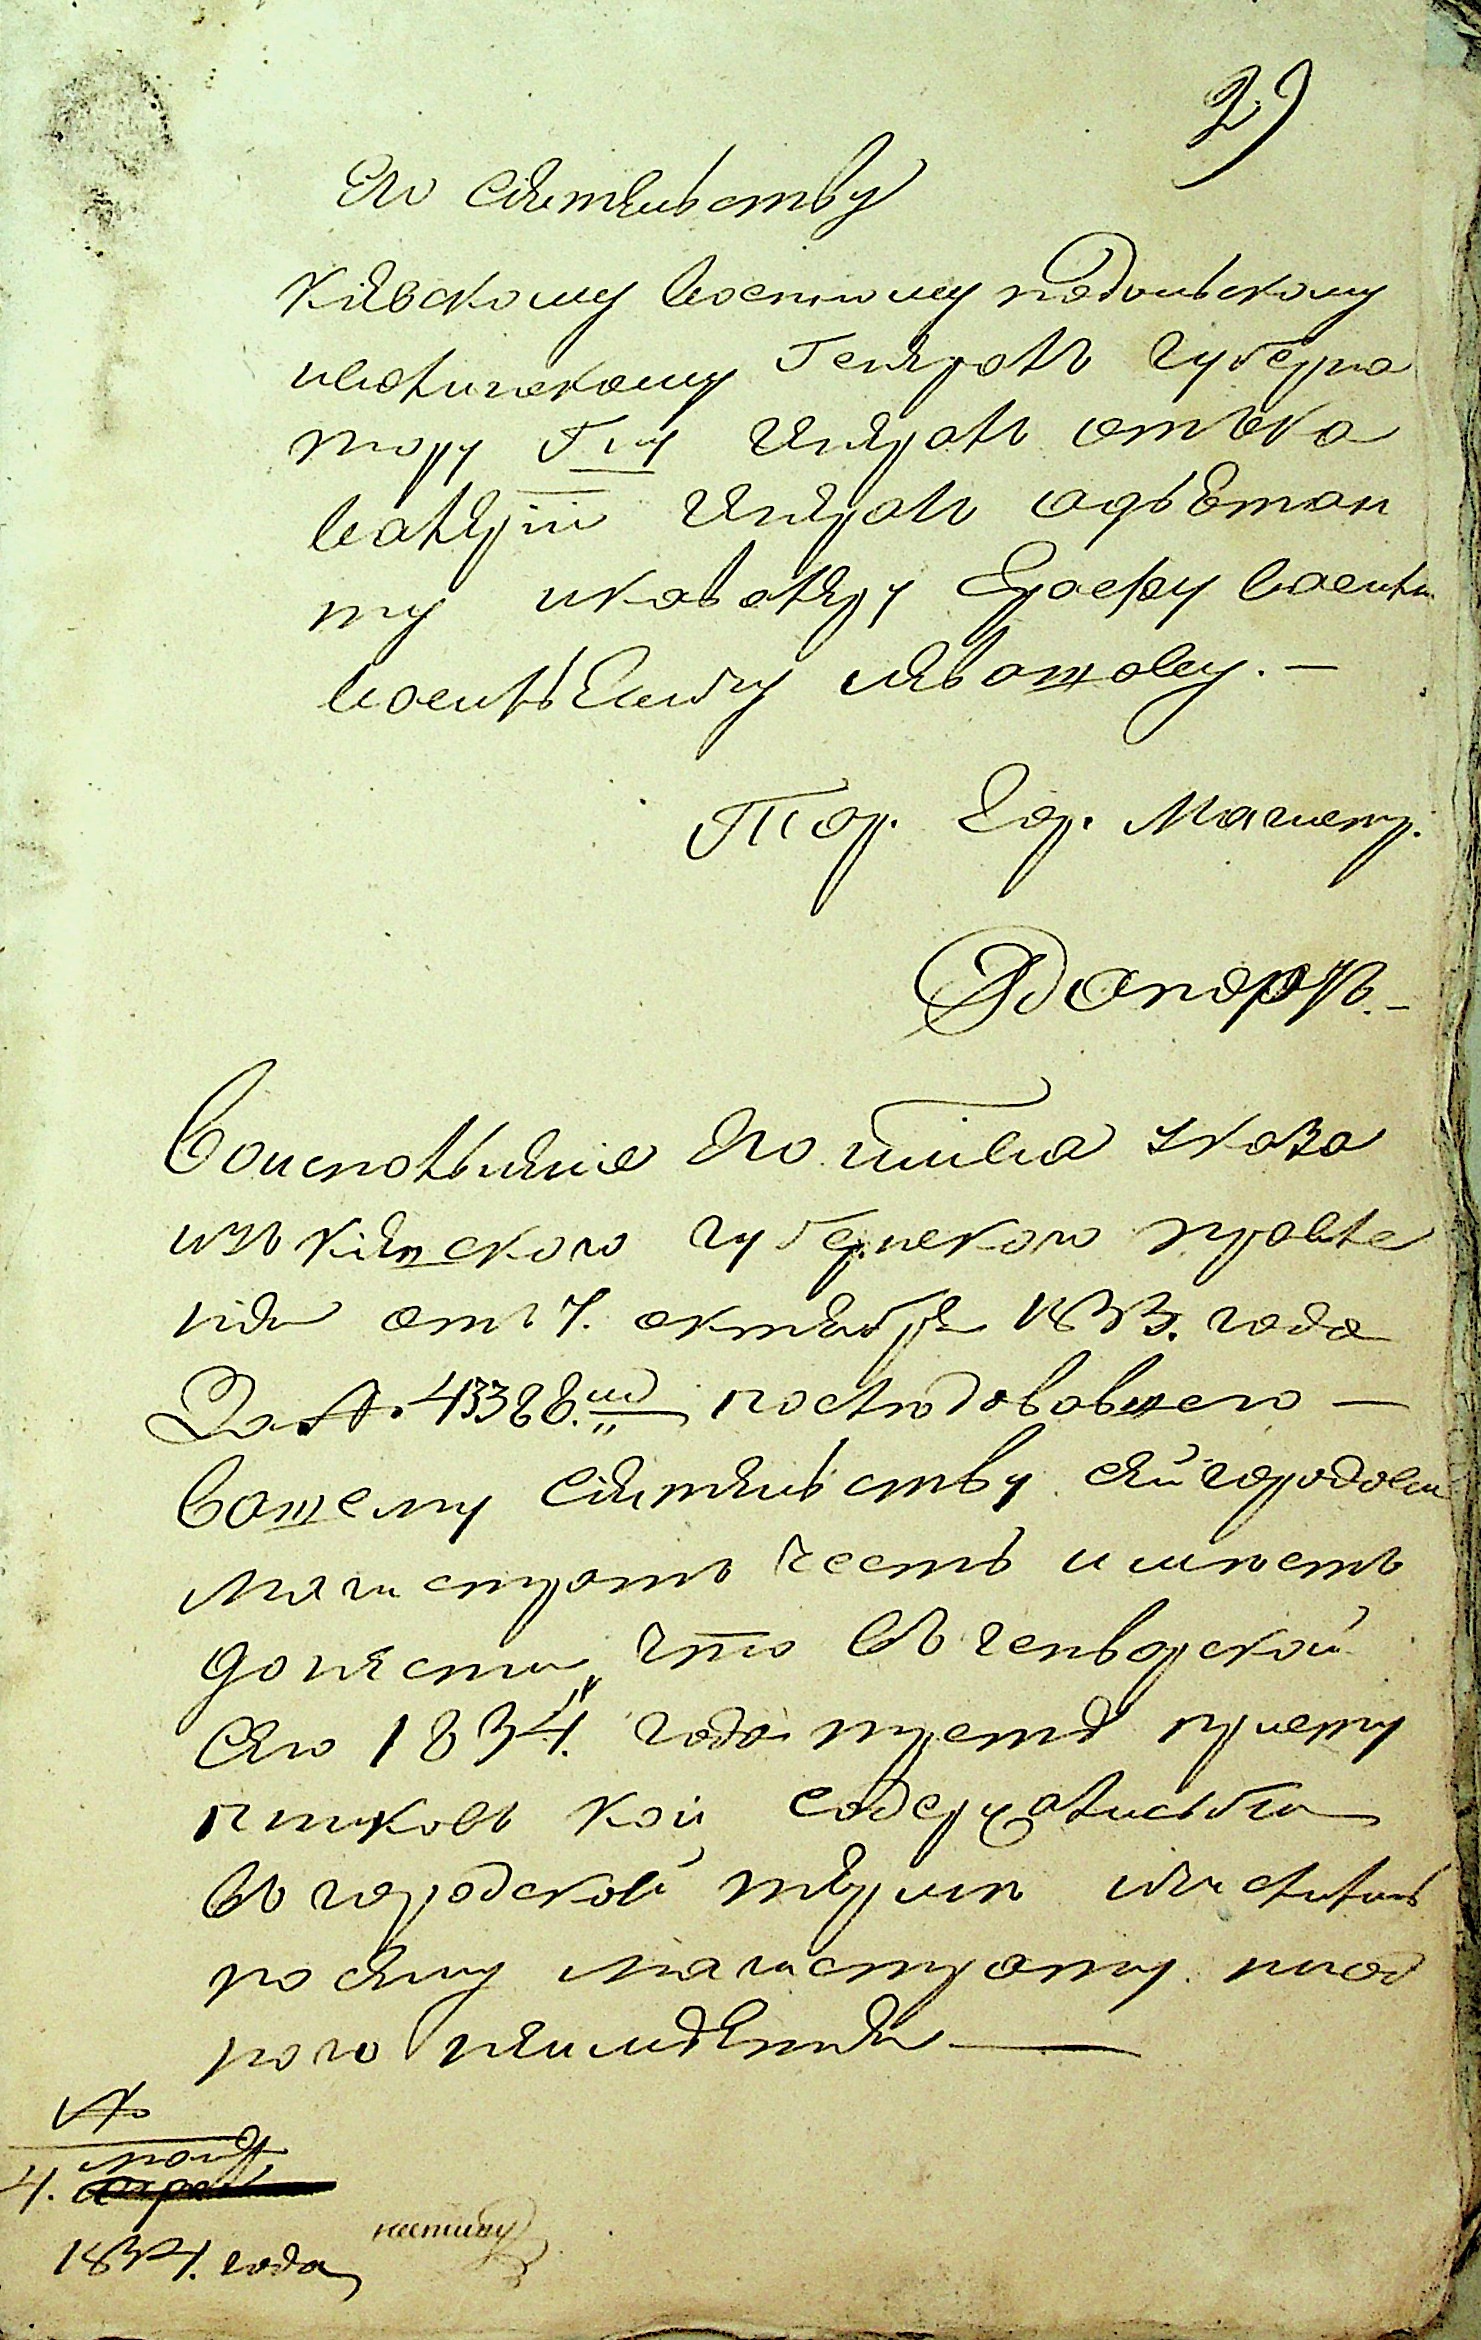 2)
Его Сіятельству
Кіевскому военному подольскому
иволынскому Генералъ Губерна
тору Гну Генералъ отъ ка
валеріи Генералъ адъютан
ту икавалеру Графу василію
васильевичу левашову. —
Тар. Гор. Магистр.
Рапортъ. —
Воисполненіе Его Імпе: указа
изъ Кіевского губернского правле
нія отъ 7. октября 1833. года
За №. 43386.мъ последовавшего —
вашему Сіятельству сей городовой
магистратъ честь имѣетъ
донести, что въ генварской
сего 1834. года трети
кои содержалисьбы
въ городской тюрьмѣ
по сему магистрату ниод
ного неимѣется —
№
4. маія
1834. года